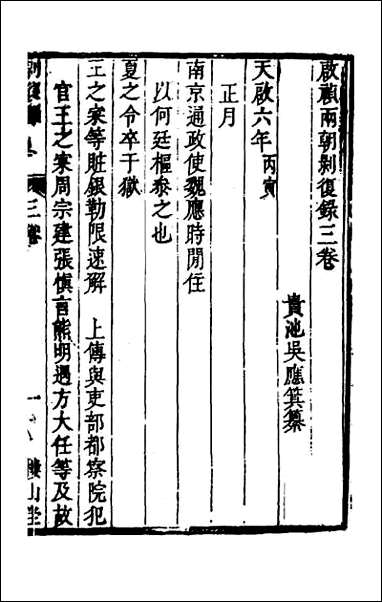 啟禎兩朝剝復錄三卷
貴池吳應箕纂
天啟六年丙寅
正月
南京通政使魏應時閒住
以何廷樞叅之也
夏之令卒于獄
王之寀等賍銀勒限速解　上傳與吏部都察院犯
官王之寀周宗建張慎言熊明遇方大任等及故
剝復錄
三卷
一
樓山堂